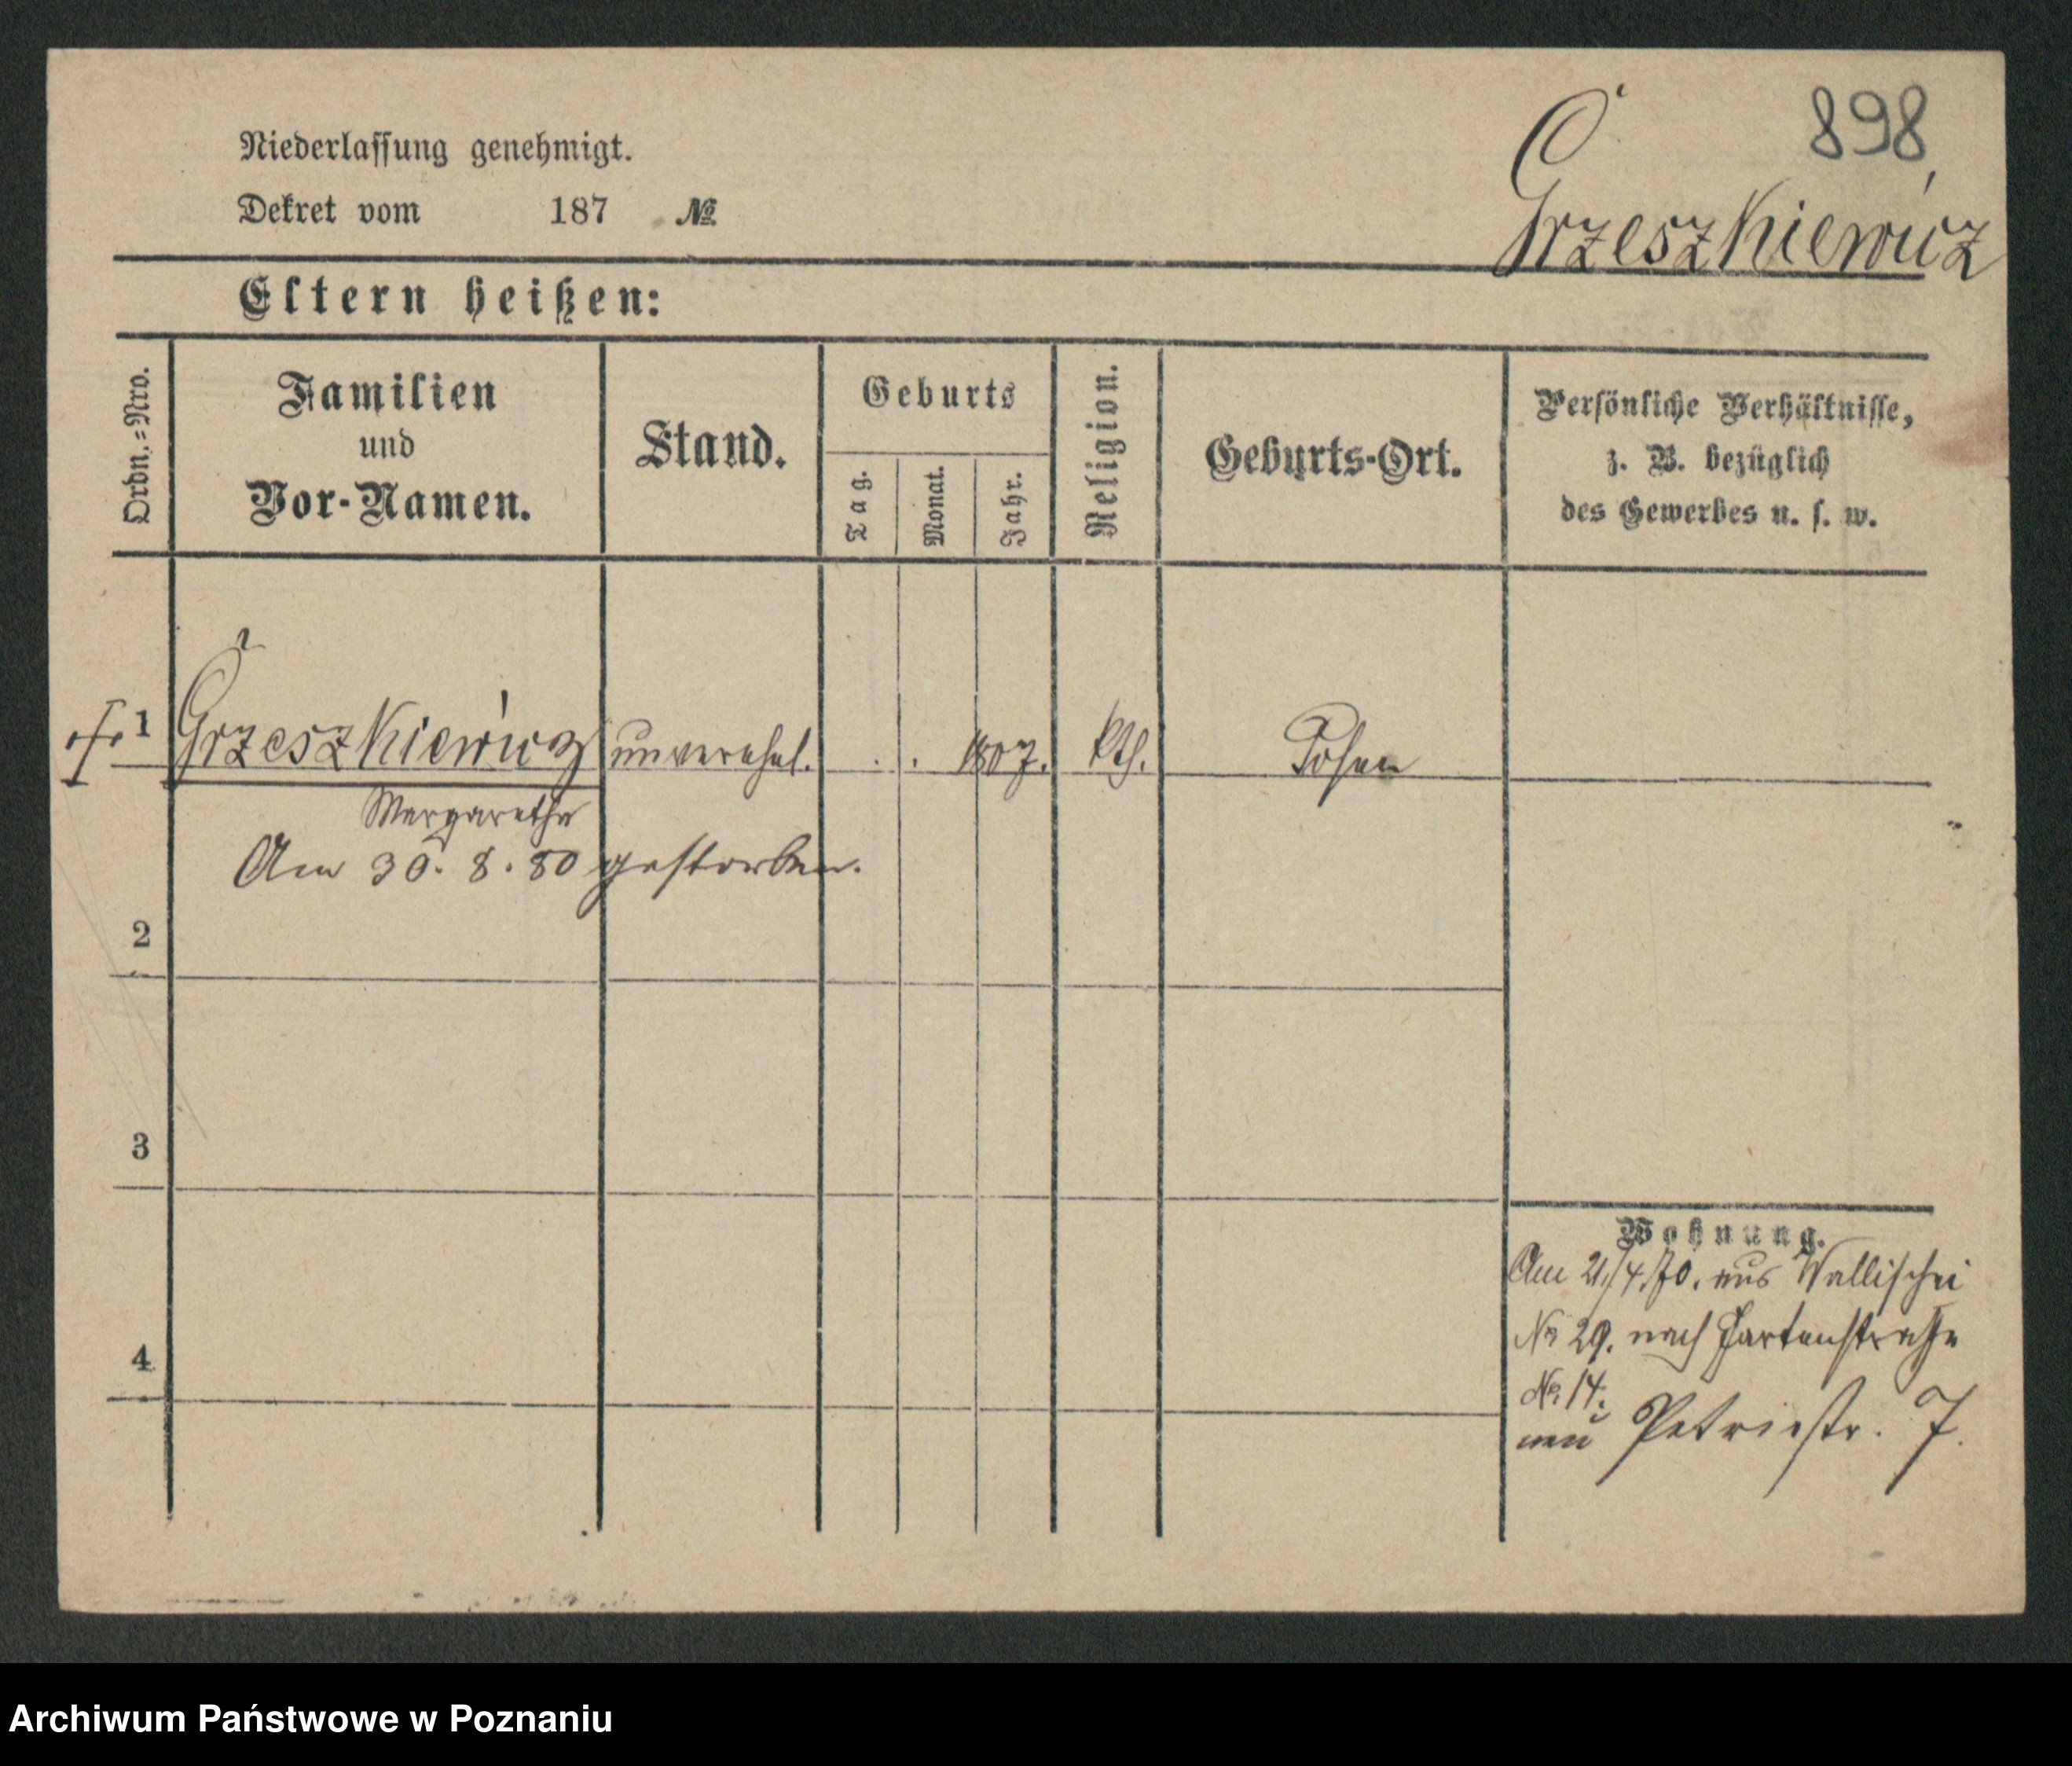 898
Niederlassung genehmigt.
Dekret vom 187 №
Grzeszkiewicz
Eltern heißen:
Ordn.=Nro.
Familien
und
Vor-Namen.
Stand.
Geburts
Tag.
Monat.
Jahr.
Religion.
Geburts-Ort.
Persönliche Verhältnisse,
z. B. bezüglich
des Gewerbes u. s. w.
1 Grzeszkiewicz unverehel. . . 1807. kth. Posen
Margarethe
Am 30. 8. 80 gestorben.
2
3
4
Wohnung.
Am 21/4.70. aus Wallischei
No 29. nach Gartenstraße
No. 14.
neu Petristr. 7.
Archiwum Państwowe w Poznaniu